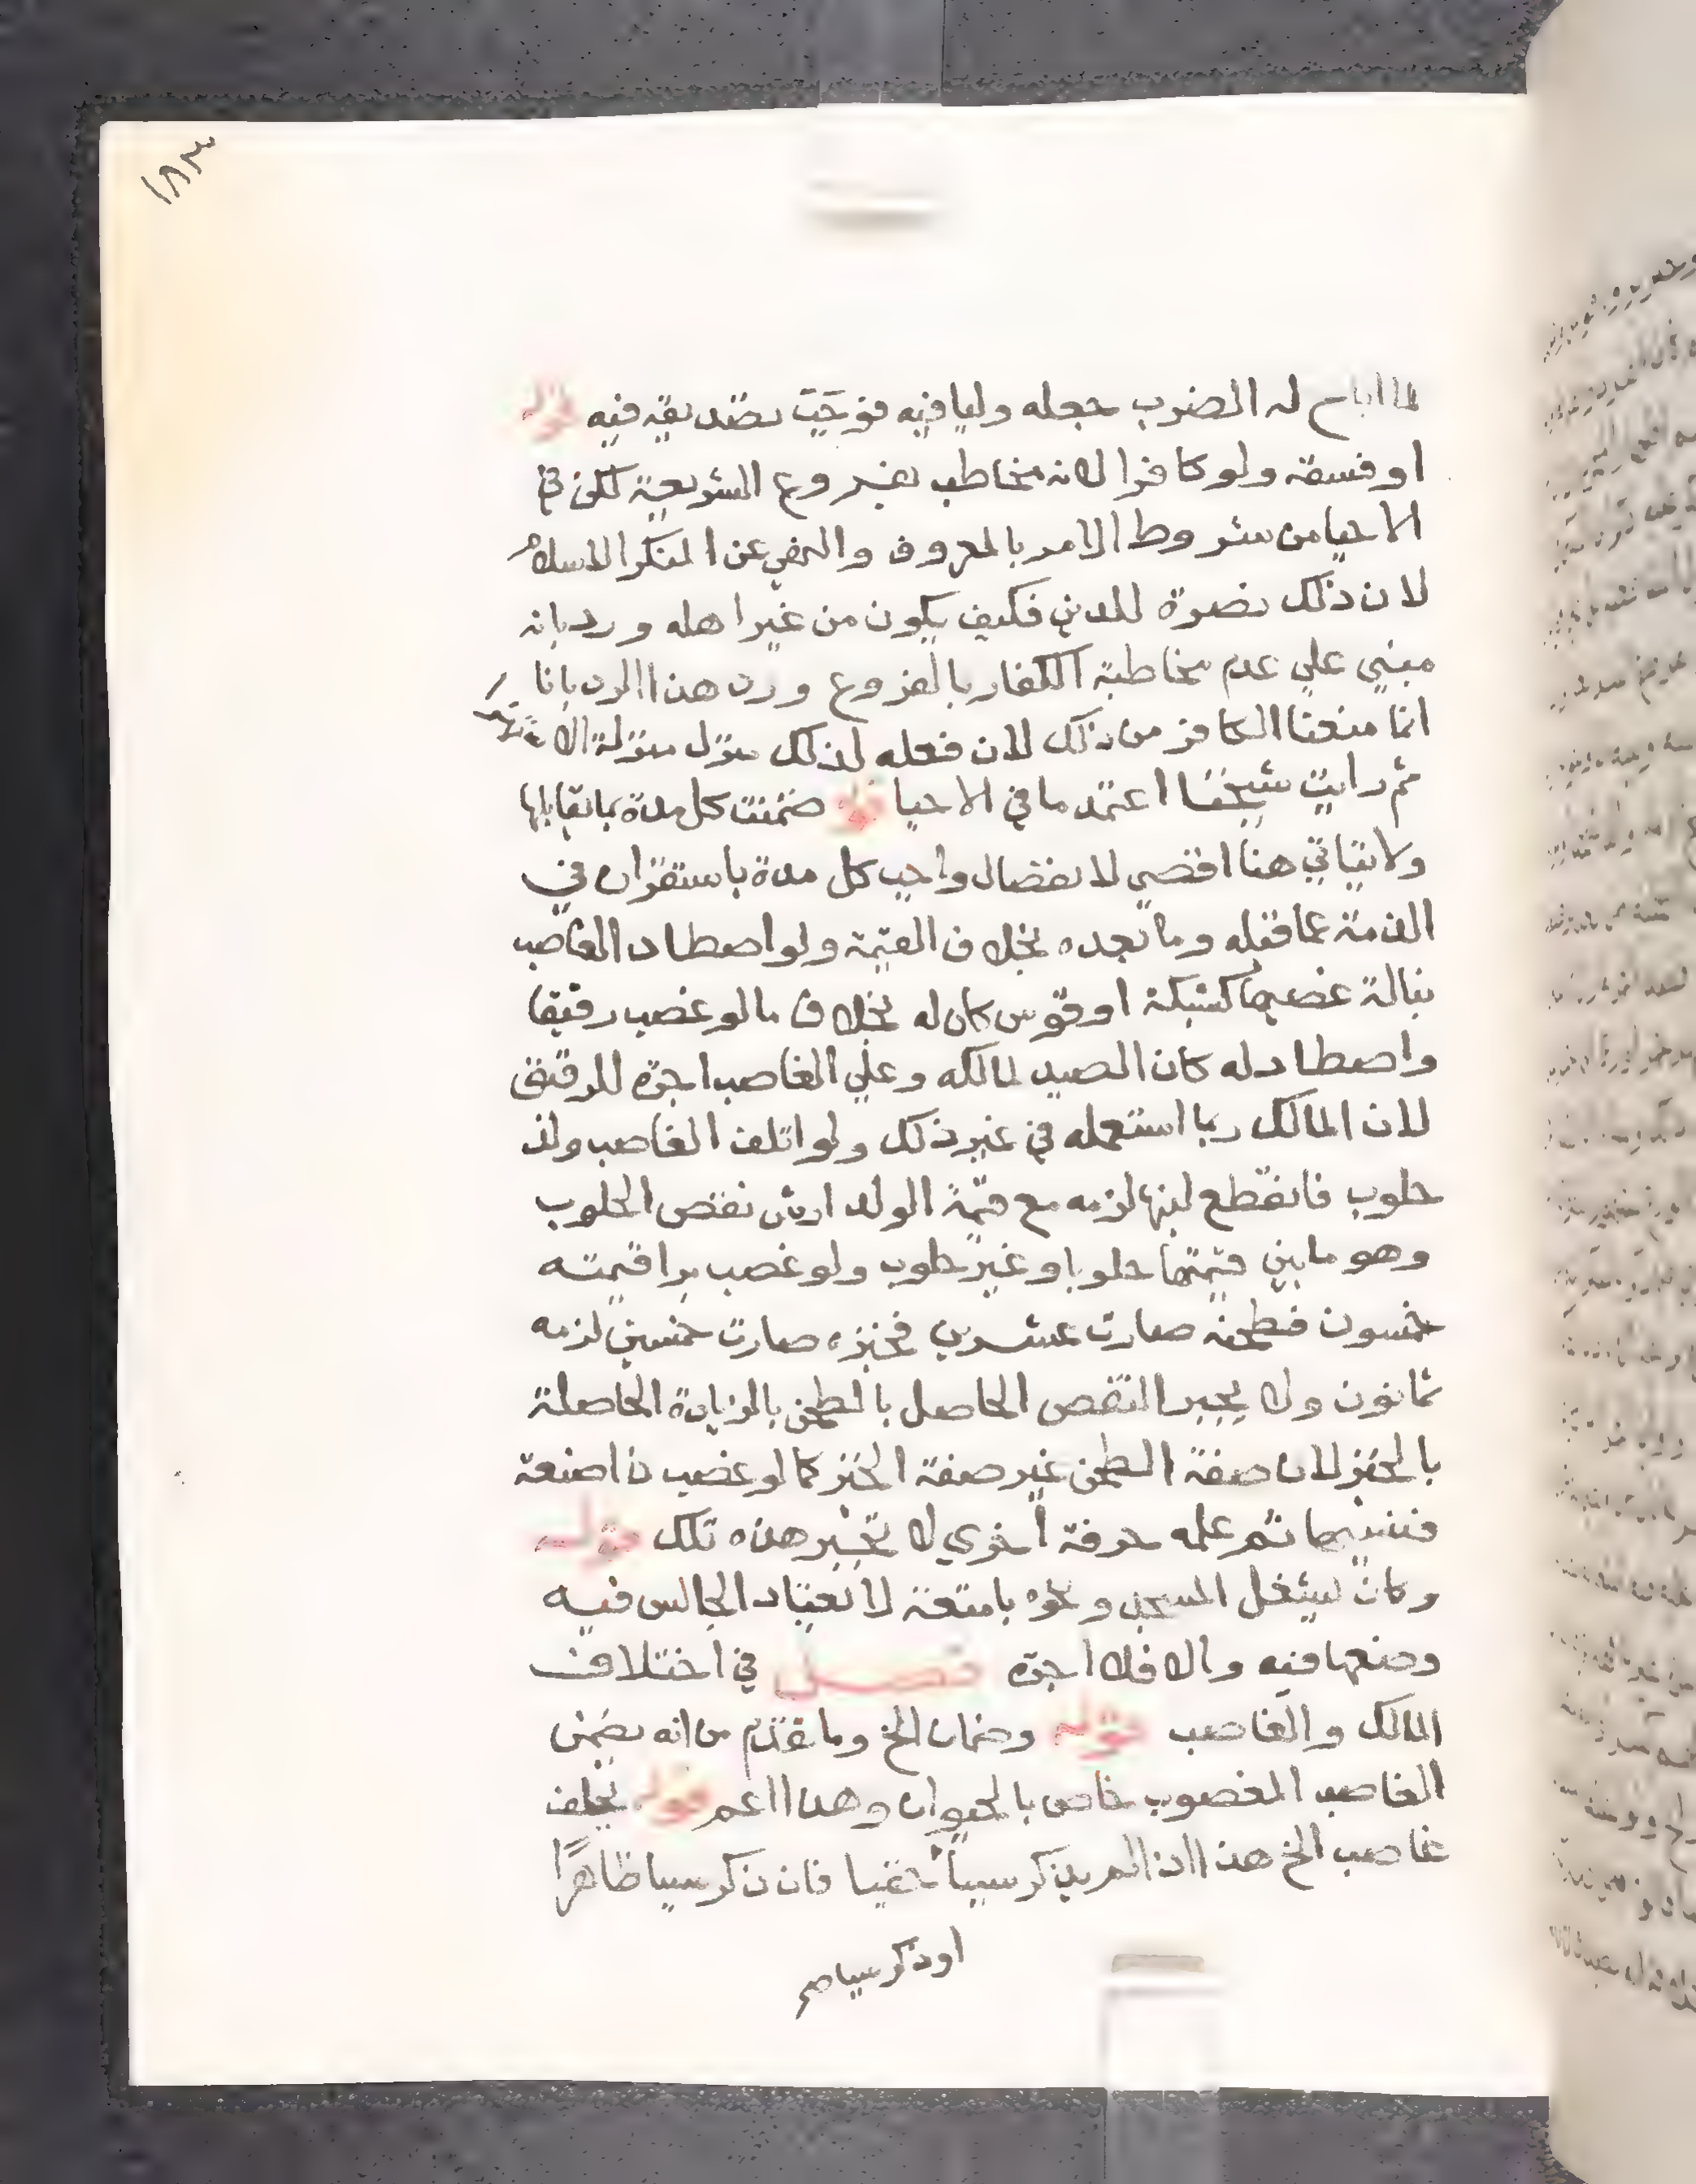 ١٨٣
لما اباح له الضرب جعله وليا فيه فوجب تصديقه فيه قوله
او فسقة ولو كافرا لانه مخاطب بفروع الشريعة لكن في
الاحيا من شروط الامر بالمعروف والنهي عن المنكر الاسلام
لان ذلك نصرة للدين فكيف يكون من غير اهله ورد بانه
مبني علي عدم مخاطبة الكفار بالفروع ورد هذا الرد بانا
انما منعنا الكافر من ذلك لان فعله لذلك منزل منزلة الاستهزاء
ثم رايت شيخنا اعتمد ما في الاحيا قوله ضمنت كل مدة بما يقابلها
ولا يتاتي هنا اقصي لانفصال واجب كل مدة باستقراره في
الذمة عما قبله وما بعده بخلاف القيمة ولو اصطاد الغاصب
بنالة غصبها كشبكة او قوس كان له بخلاف ما لو غصب رقيقا
واصطاد له كان الصيد لمالكه وعلي الغاصب اجرة للرقيق
لان المالك ربما استعمله في غير ذلك ولو اتلف الغاصب ولد
حلوب فانقطع لبنها لزمه مع قيمة الولد ارش نقص الحلوب
وهو ما بين قيمتها حلوبا وغير حلوب ولو غصب برا قيمته
خمسون فطحنه صارت عشرين فخبزه صارت خمسين لزمه
ثمانون ولا يجبر النقص الحاصل بالطحن بالزيادة الحاصلة
بالخبز لان صفة الطحن غير صفة الخبز كما لو غصب ذا صنعة
فنسيها ثم علمه حرفة أخري لا تجبر هذه تلك قوله
وكان ليشغل المسجد ونحوه بامتعة لا يعتاد الجالس فيه
وضعها فيه والا فلا اجرة فصل في اختلاف
المالك والغاصب قوله وضمان الخ وما تقدم من انه يضمن
الغاصب المغصوب خاص بالحيوان وهذا اعم قوله يحلف
غاصب الخ هذا اذا لم يذكر سببا خفيا فان ذكر سببا ظاهرًا
او ذكر سببا صح